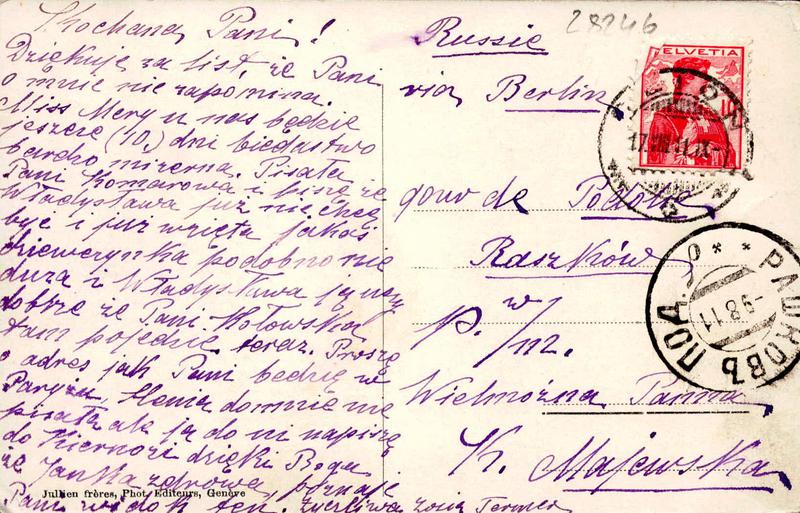 Kochana Pani!
Dziękuję za list, że Pani
o mnie nie zapomina.
Miss Mery u nas będzie
jeszcze (10) dni biedactwo
bardzo mizerna. Pisała
Pani Komarowa i pisze że
Władysława już nie chce
być i już wzięła jakąś
dziewczynkę podobno nie
duża i Władysława ją uczy
dobrze że Pani Kotowska
tam pojedzie teraz. Proszę
o adres jak Pani będzie w
Paryżu. Hema do mnie nie
pisała ale ja do ni napiszę
do Kiernozi dzięki Bogu
że Janka zdrowa,
Pani widok ten. życzliwa
28246
Russie
via Berlin
gouv de Podolie
Raszków
w
p. / m.
Wielmożna Panna
K. Majewska
HELVETIA
10
17.VIII.11.IX
РАШКОВЪ ПОД. О
-9 8 11
Jullien frères, Phot. Editeurs, Genève